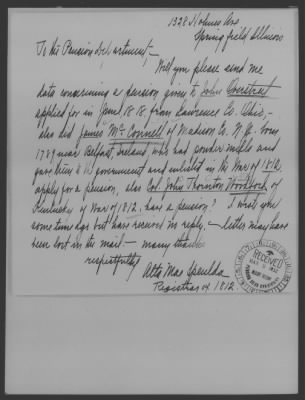 1328 Holmes Ave
Springfield Illinois
To the Pension Department,—
Will you please send me
data concerning a pension given to John Overstreet
applied for in June 1818, from Lawrence Co. Ohio,—
also did James McConnell of Madison Co. N.Y. born
1789 near Belfast, Ireland, who had powder mills and
gave them to the government and enlisted in the War of 1812,
apply for a pension, also Col. John Thornton Woodford of
Kentucky of War of 1812, have a pension? I wrote you
some time ago but have received no reply,— letter may have
been lost in the mail — many thanks
respectfully
Alta Mae Speulda
Registrar of 1812
RECEIVED